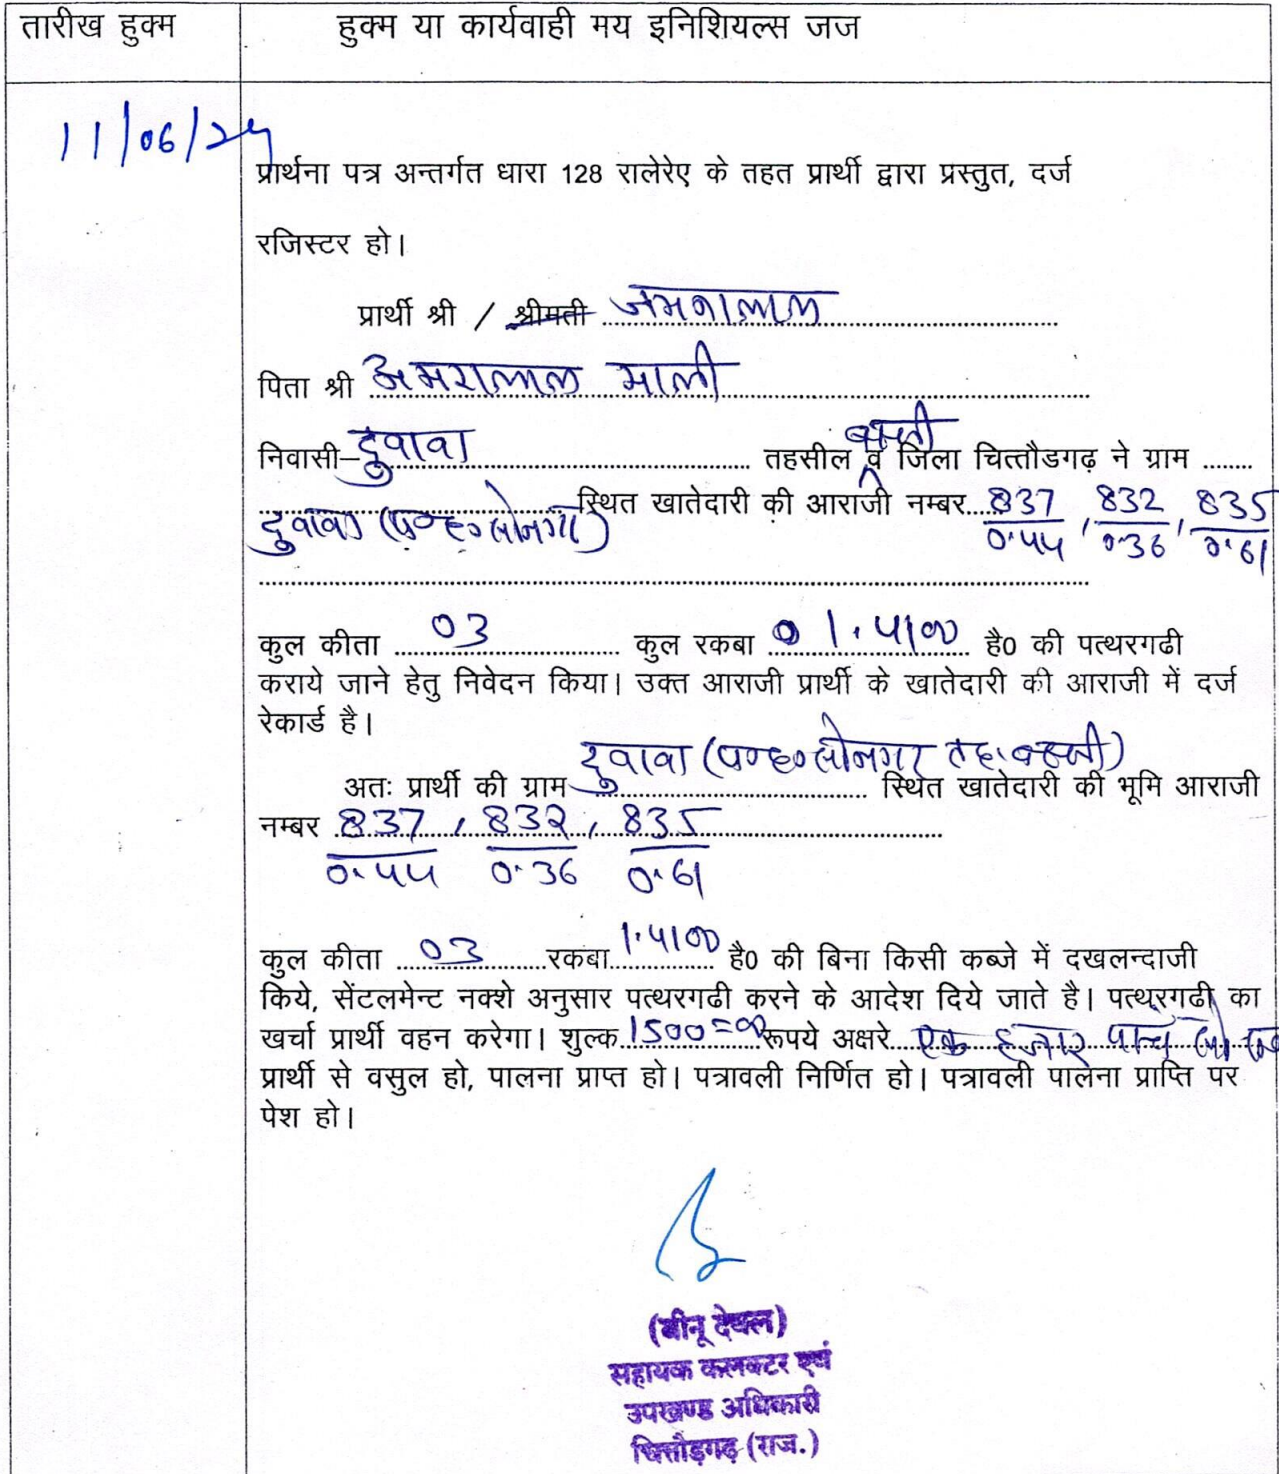 तारीख हुक्म
हुक्म या कार्यवाही मय इनिशियल्स जज
11/06/24
प्रार्थना पत्र अन्तर्गत धारा 128 रालेरेए के तहत प्रार्थी द्वारा प्रस्तुत, दर्ज
रजिस्टर हो।
प्रार्थी श्री / श्रीमती जमनालाल
पिता श्री अमरालाल माली
बस्सी
निवासी– दुवावा तहसील व जिला चित्तौडगढ़ ने ग्राम ........
स्थित खातेदारी की आराजी नम्बर 837, 832, 835
दुवावा (प०ह० सोनगर) 0.44 0.36 0.61
कुल कीता 03 कुल रकबा 01.4100 है0 की पत्थरगढी
कराये जाने हेतु निवेदन किया। उक्त आराजी प्रार्थी के खातेदारी की आराजी में दर्ज
रेकार्ड है।
दुवावा (प०ह० सोनगर तह. बस्सी)
अतः प्रार्थी की ग्राम स्थित खातेदारी की भूमि आराजी
नम्बर 837, 832, 835
0.44 0.36 0.61
कुल कीता 03 रकबा 1.4100 है0 की बिना किसी कब्जे में दखलन्दाजी
किये, सेंटलमेन्ट नक्शे अनुसार पत्थरगढी करने के आदेश दिये जाते है। पत्थरगढी का
खर्चा प्रार्थी वहन करेगा। शुल्क 1500=00 रूपये अक्षरे एक हजार पान्च सो
प्रार्थी से वसुल हो, पालना प्राप्त हो। पत्रावली निर्णित हो। पत्रावली पालना प्राप्ति पर
पेश हो।
(बीनू देवल)
सहायक कलक्टर एवं
उपखण्ड अधिकारी
चित्तौड़गढ़ (राज.)